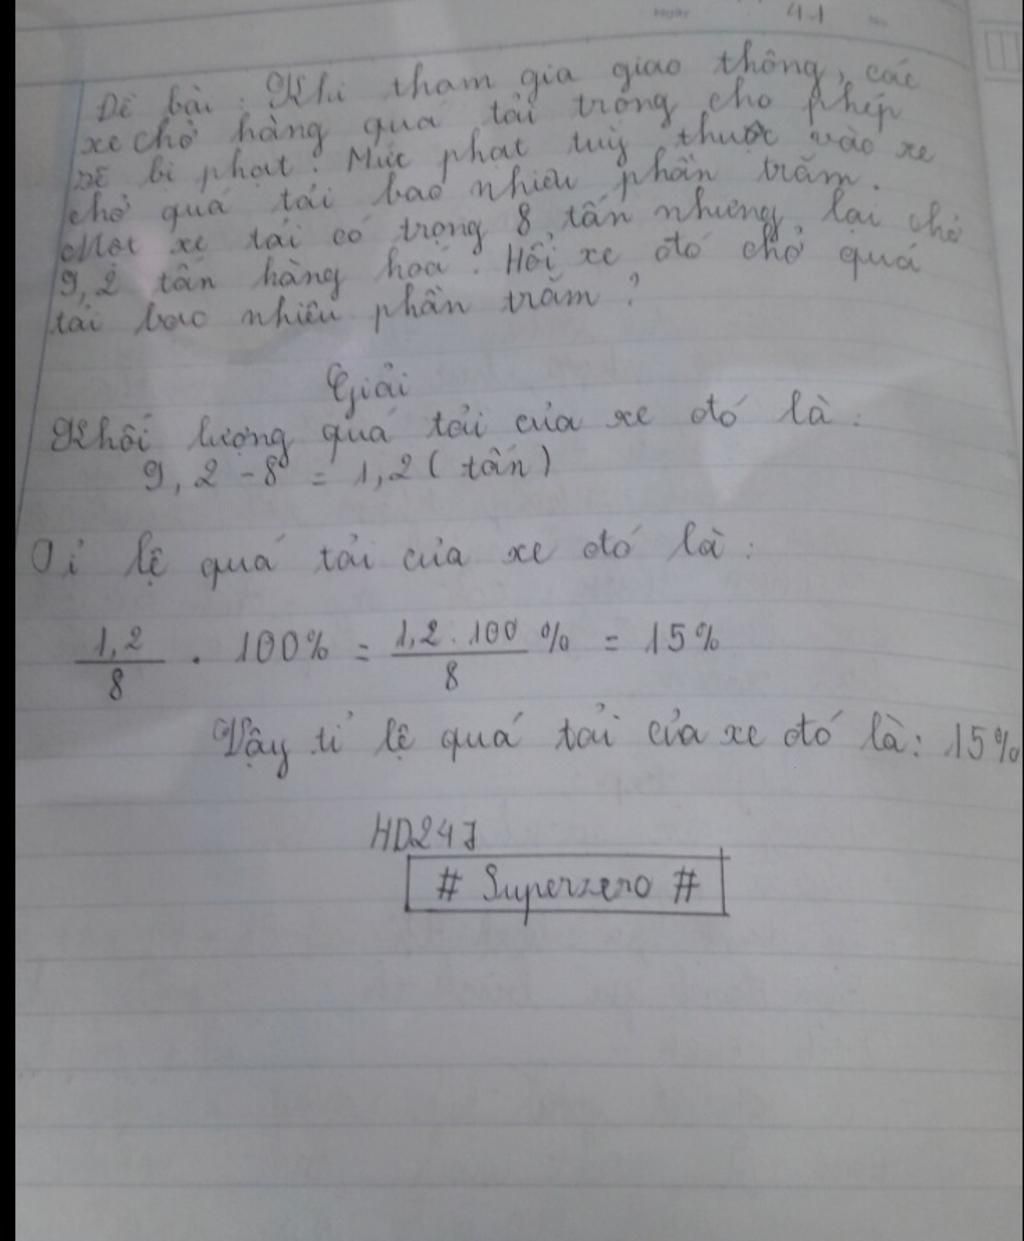 Ngày 4-1 No
Đề bài: Khi tham gia giao thông, các
xe chở hàng quá tải trọng cho phép
sẽ bị phạt. Mức phạt tuỳ thuộc vào xe
chở quá tải bao nhiêu phần trăm.
Một xe tải có trọng 8 tấn nhưng lại chở
9,2 tấn hàng hoá. Hỏi xe đó chở quá
tải bao nhiêu phần trăm?
Giải
Khối lượng quá tải của xe đó là:
9,2 - 8 = 1,2 (tấn)
Tỉ lệ quá tải của xe đó là:
1,2/8 . 100% = 1,2.100/8 % = 15%
Vậy tỉ lệ quá tải của xe đó là: 15%
HD247
# Superzero #